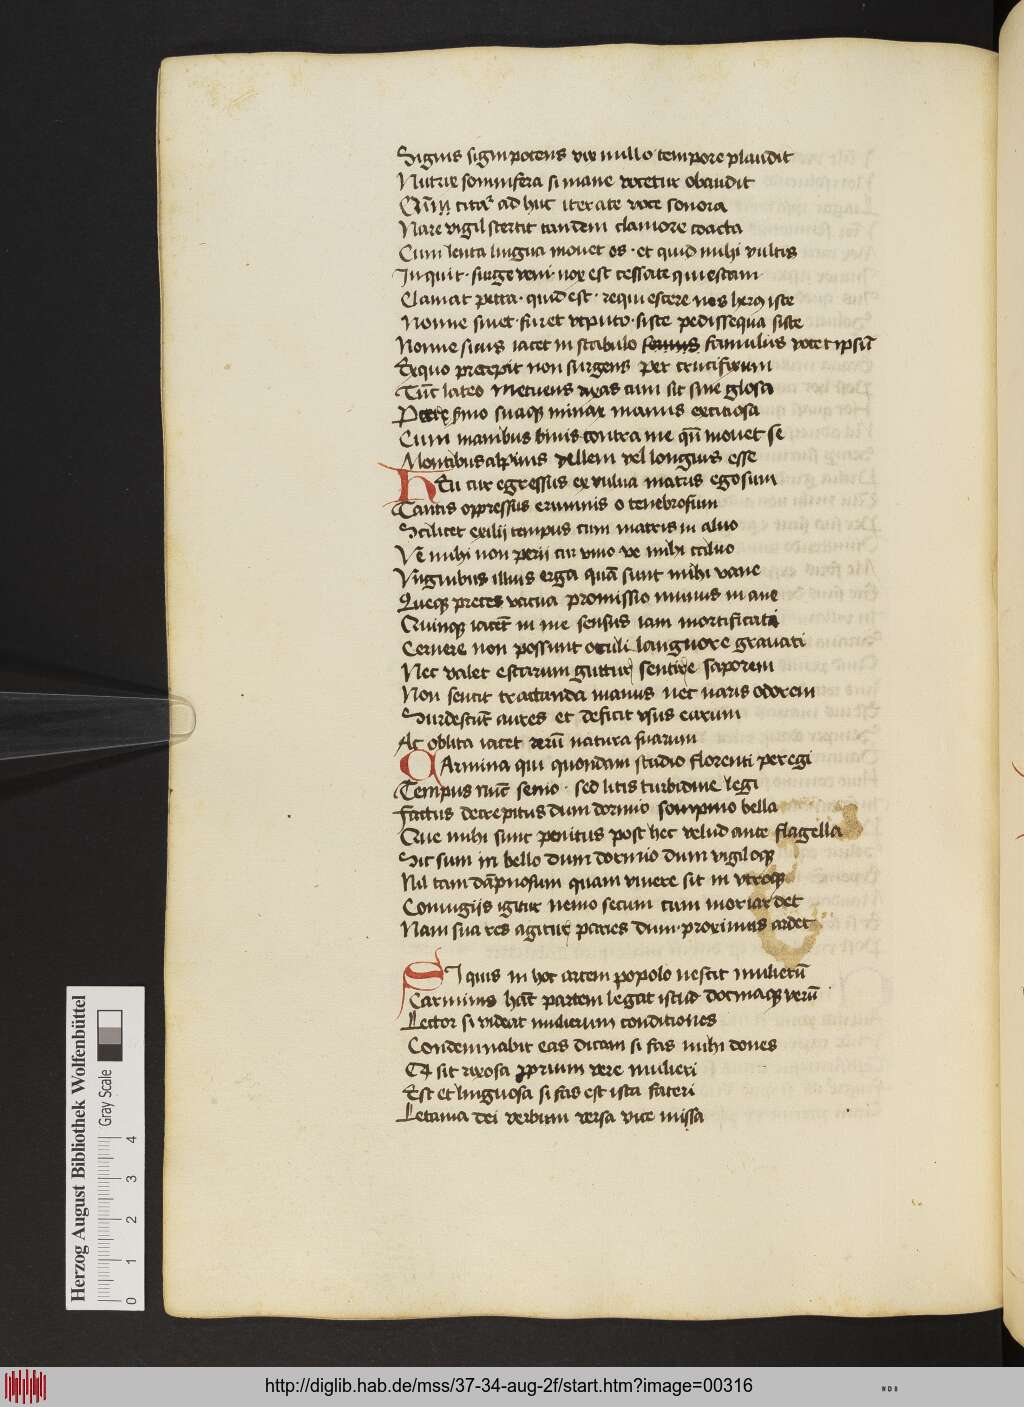 Signis signipotens vix nullo tempore plaudit
Nutrix sompnifera si mane vocetur obaudit
ad huc iterate voce sonora
Nare vigil stertit tandem clamore coacta
Cum lenta lingua mouet os · et quid michi vultis
Inquit · surge veni · nox est cessate quiescam
Clamat petra · quid est · requiescere nos
Nonne sinet · furet vt puto · siste pedissequa siste
Nonne suus iacet in stabulo famulus vocet ipsū
Ex quo precepit non surgens per crucifixum
Tūc lateo metuens rixas cum sit sine glosa
suaque minax manus exitiosa
Cum manibus binis contra me mouet se
Montibus alpinis vellem vel longius esse
HEu cur egressus ex vulua matris ego sum
Tantis oppressus erumnis o tenebrosum
Scilicet exilii tempus cum matris in aluo
Ve michi non perii cur viuo ve michi caluo
Virginibus illius erga quā sunt michi vane
Queque preces vacua promissio munus inane
Quinque iacēt in me sensus iam mortificati
Cernere non possunt oculi languore grauati
Nec valet escarum guttur sentire saporem
Non sentit tractanda manus nec naris odorem
Surdescūt aures et deficit vsus earum
Ac oblita iacet rerū natura suarum
CArmina qui quondam studio florenti peregi
Tempus nūc senio · sed litis turbidine legi
Factus decrepitus dum dormio sompnio bella
Que michi sunt penitus post hec velud ante flagella
Sic sum in bello dum dormio dum vigiloque
Nil tam dāpnosum quam viuere sit in vtroque
Coniugijs igitur nemo secum cum moriar det
Nam sua res agitur paries dum proximus ardet
SI quis in hoc artem populo nescit mulierū
Carminis hāc partem legat istud docmaque verū
Lector si videat mulierum conditiones
Condempnabit eas dicam si fas michi dones
sit rixosa proprium vere mulieri
Est et linguosa si fas est ista fateri
Letania dei verbum versa vice missa
Herzog August Bibliothek Wolfenbüttel
Gray Scale
0 1 2 3 4
http://diglib.hab.de/mss/37-34-aug-2f/start.htm?image=00316